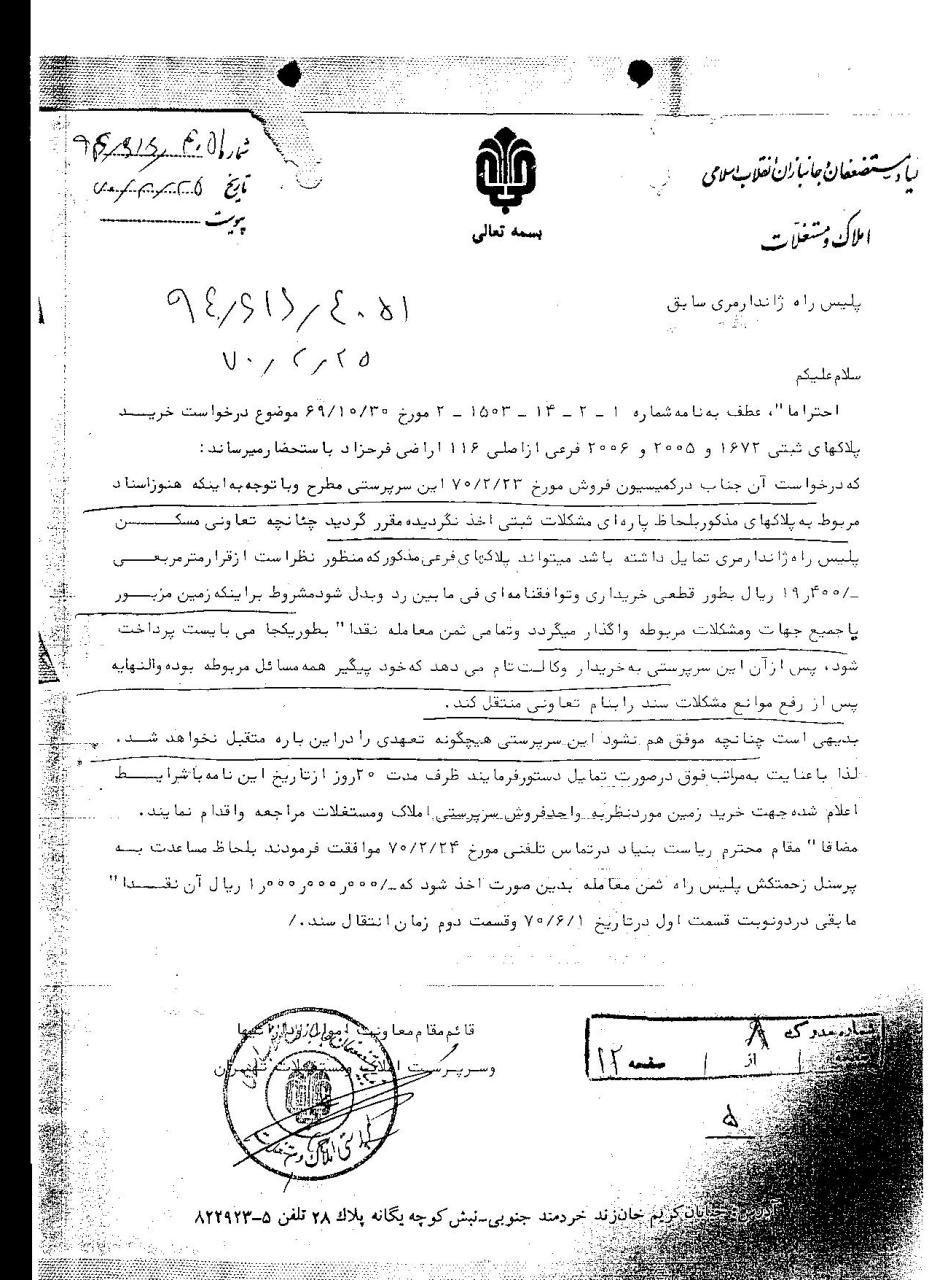 بنیاد مستضعفان و جانبازان انقلاب اسلامی
املاک و مستغلات
بسمه تعالی
شماره
تاریخ ۷۰/۲/۲۵
پیوست
پلیس راه ژاندارمری سابق
۷۰/۲/۲۵
سلام علیکم
احتراما"، عطف به نامه شماره ۱ - ۲ - ۱۴ - ۱۵۰۳ - ۲ مورخ ۶۹/۱۰/۳۰ موضوع درخواست خریـــد
پلاکهای ثبتی ۱۶۷۲ و ۲۰۰۵ و ۲۰۰۶ فرعی ازاصلی ۱۱۶ اراضی فرحزاد باستحضارمیرساند:
که درخواست آن جناب درکمیسیون فروش مورخ ۷۰/۲/۲۳ این سرپرستی مطرح وباتوجه به اینکه هنوزاسناد
مربوط به پلاکهای مذکوربلحاظ پاره ای مشکلات ثبتی اخذ نگردیده مقرر گردید چنانچه تعاونی مسکـــن
پلیس راه ژاندارمری تمایل داشته باشد میتواند پلاکهای فرعی مذکورکه منظور نظراست ازقرارمترمربعـــی
ـ/۱۹٫۴۰۰ ریال بطور قطعی خریداری وتوافقنامه ای فی مابین رد وبدل شودمشروط براینکه زمین مزبـــور
باجمیع جهات ومشکلات مربوطه واگذار میگردد وتمامی ثمن معامله نقدا" بطوریکجا می بایست پرداخت
شود، پس ازآن این سرپرستی به خریدار وکالت تام می دهد که خود پیگیر همه مسائل مربوطه بوده والنهایه
پس از رفع موانع مشکلات سند رابنام تعاونی منتقل کند.
بدیهی است چنانچه موفق هم نشود این سرپرستی هیچگونه تعهدی رادراین باره متقبل نخواهد شـــد.
لذا باعنایت به مراتب فوق درصورت تمایل دستورفرمایند ظرف مدت ۲۰روز ازتاریخ این نامه باشرایـــط
اعلام شده جهت خرید زمین موردنظربه واحدفروش سرپرستی املاک ومستغلات مراجعه واقدام نمایند.
مضافا" مقام محترم ریاست بنیاد درتماس تلفنی مورخ ۷۰/۲/۲۴ موافقت فرمودند بلحاظ مساعدت بـــه
پرسنل زحمتکش پلیس راه ثمن معامله بدین صورت اخذ شود که ـ/۱٫۰۰۰٫۰۰۰٫۰۰۰ ریال آن نقـــدا"
مابقی دردونوبت قسمت اول درتاریخ ۷۰/۶/۱ وقسمت دوم زمان انتقال سند./
قائم مقام معاونت
وسرپرست املاک ومستغلات تهران
شماره مدرک ۸
صفحه ۱ از ۱ صفحه ۱۲
۵
خیابان کریم خان زند خردمند جنوبی-نبش کوچه یگانه پلاک ۲۸ تلفن ۵-۸۲۲۹۲۳